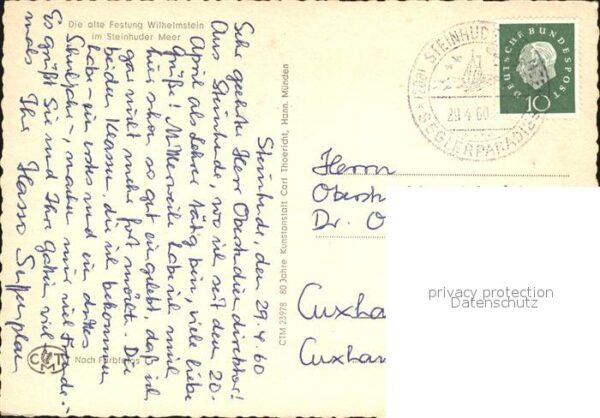 Die alte Festung Wilhelmstein
im Steinhuder Meer
Steinhude, den 29.4.60
Sehr geehrter Herr Oberstudiendirektor!
Aus Steinhude, wo ich seit dem 20.
April als Lehrer tätig bin, viele liebe
Grüße! Mittlerweile habe ich mich
hier schon so gut eingelebt, daß ich
gar nicht mehr fort möchte. Die
beiden Klassen, die ich bekommen
habe - ein erstes und ein drittes
Schuljahr -, machen mir viel Freude.-
Es grüßt Sie und Ihre Gattin viel-
mals Ihr Hasso
CTM
Nach Farbfotos
CTM 23978 80 Jahre Kunstanstalt Carl Thoericht, Hann. Münden
STEINHUDE
29.4.60
SEGLERPARADIES
DEUTSCHE BUNDESPOST
10
Herrn
Oberst
Dr. O
Cuxha
Cuxha
privacy protection
Datenschutz